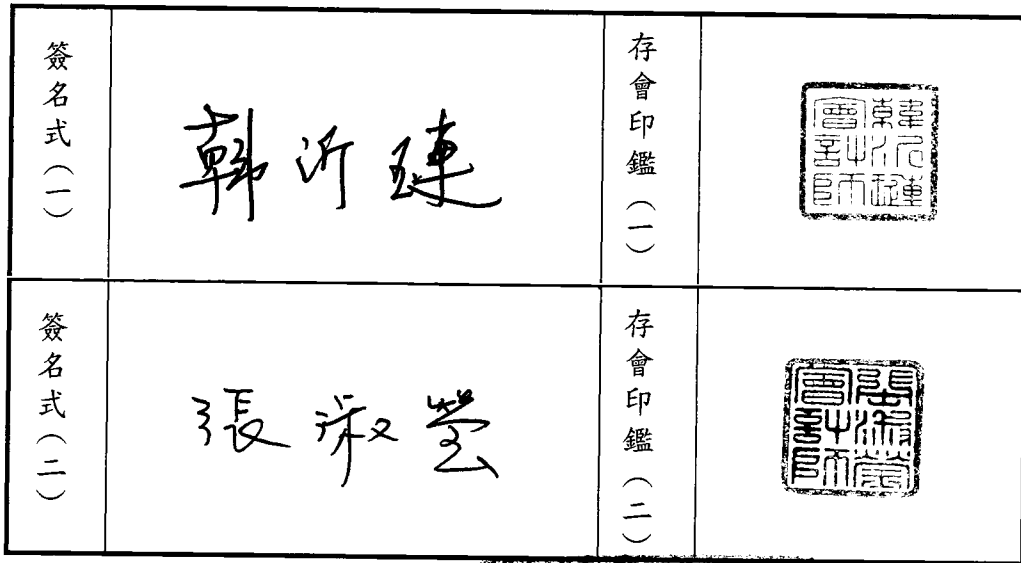 簽名式（一）
韓沂璉
存會印鑑（一）
韓沂璉會計師
簽名式（二）
張淑瑩
存會印鑑（二）
張淑瑩會計師